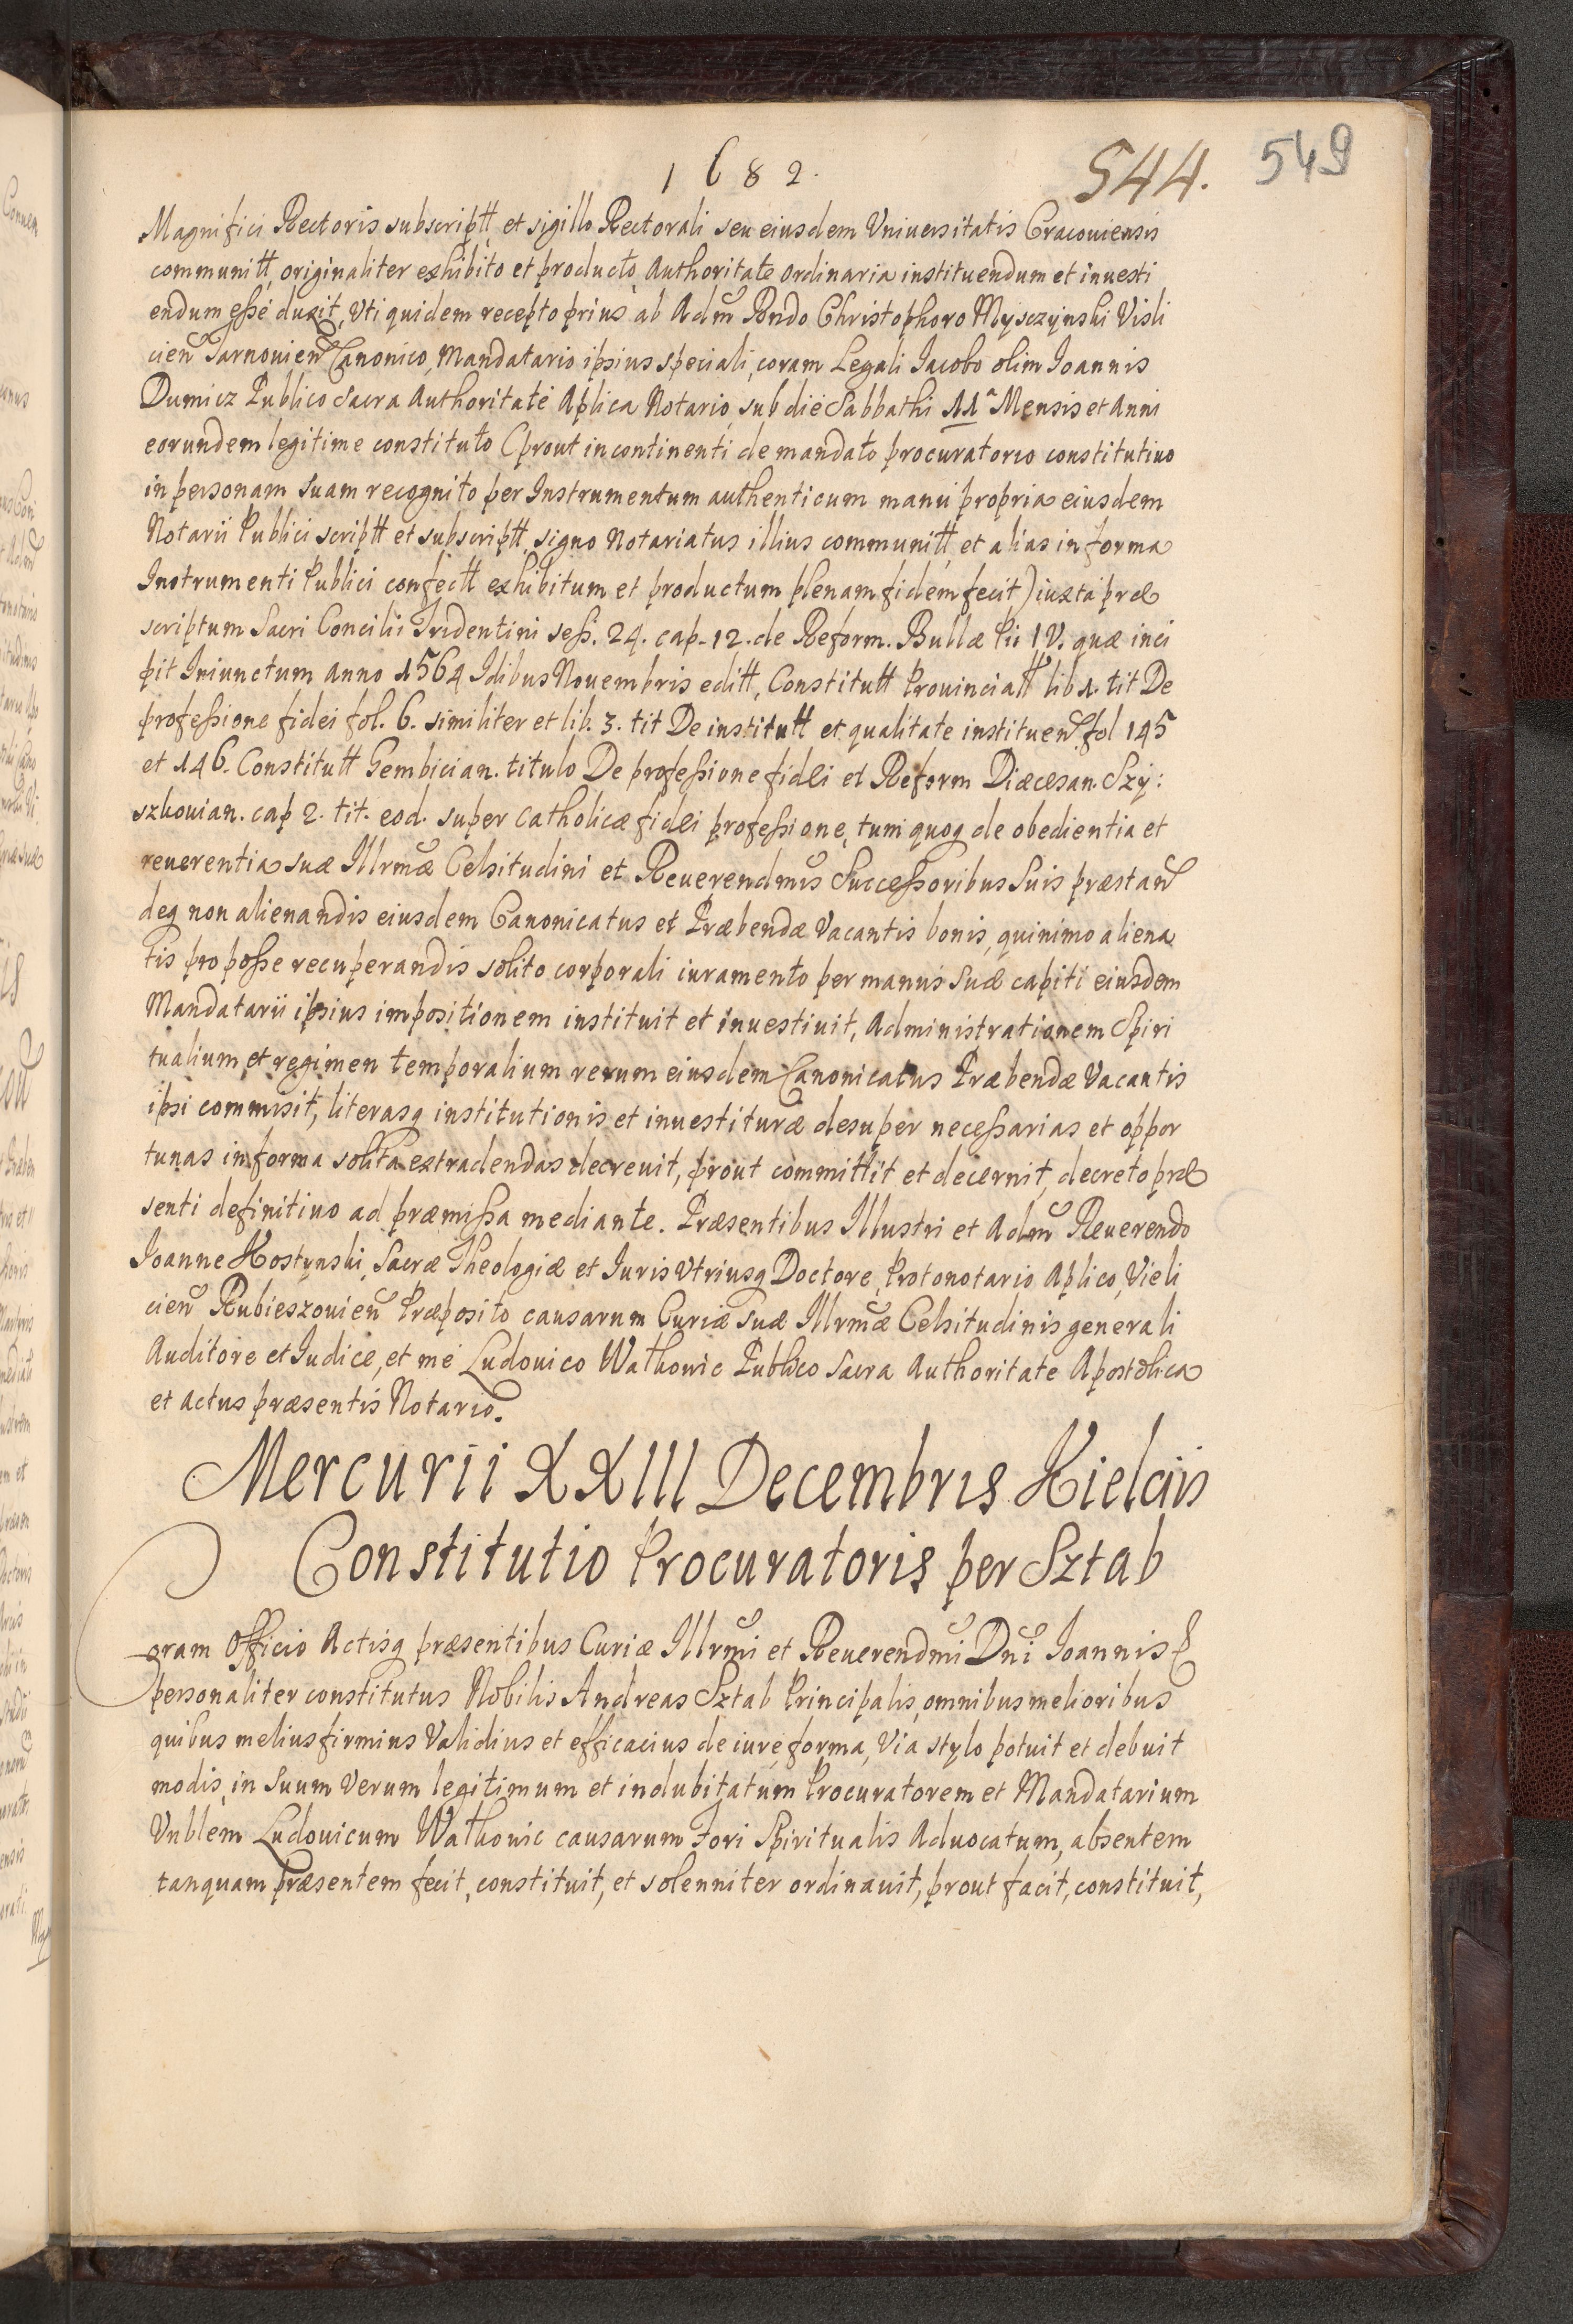 1682.
544. 549
Magnifici Rectoris subscriptt, et sigillo Rectorali seu eiusdem Vniuersitatis Cracouiensis
communitt, originaliter exhibito et producto, Authoritate ordinaria instituendum et inuesti
endum esse duxit, Vti quidem recepto prius ab Adm̃ Rndo Christophoro Mysczynski Visli
cien̄ Tarnouien̄ Canonico, Mandatario ipsius speciali, coram Legali Iacobo olim Ioannis
Dumicz Publico Sacra Authoritate Aplica Notario, sub die Sabbathi 11ª Mensis et Anni
eorundem legitime constituto (prout in continenti de mandato procuratorio constitutiuo
in personam suam recognito per Instrumentum authenticum manu propria eiusdem
Notarii Publici scriptt et subscriptt, signo Notariatus illius communitt et alias in forma
Instrumenti Publici confectt exhibitum et productum plenam fidem fecit) iuxta præ
scriptum Sacri Concilii Tridentini sess. 24. cap. 12. de Reform. Bullæ Pii IV. quæ inci
pit Iniunctum anno 1564 Idibus Nouembris editt, Constitutt Prouinciatt lib 1. tit De
professione fidei fol. 6. similiter et lib. 3. tit De institutt et qualitate instituen̄. fol 145
et 146. Constitutt Gembician. titulo De professione fidei et Reform Diæcesan. Szy:
szkouian. cap 2. tit. eod. super Catholicæ fidei professione, tum quoq de obedientia et
reuerentia suæ Illrmæ Celsitudini et Reuerendmis Successoribus Suis præstan̄
deq non alienandis eiusdem Canonicatus et Præbendæ Vacantis bonis, quinimo aliena
tis pro posse recuperandis solito corporali iuramento per manus suæ capiti eiusdem
Mandatarii ipsius impositionem instituit et inuestiuit, Administrationem Spiri
tualium et regimen temporalium rerum eiusdem Canonicatus Præbendæ Vacantis
ipsi commisit, literasq institutionis et inuestituræ desuper necessarias et oppor
tunas in forma solita extradendas decreuit, prout committit et decernit, decreto præ
senti definitiuo ad præmissa mediante. Præsentibus Illustri et Adm̃ Reuerendo
Ioanne Kostynski, Sacræ Theologiæ et Iuris Vtriusq Doctore, Protonotario Aplico, Vieli
cien̄ Rubieszouien̄ Præposito causarum Curiæ suæ Illrmæ Celsitudinis generali
Auditore et Iudice, et me Ludouico Wathonic Publico Sacra Authoritate Apostolica
et Actus præsentis Notario.
Mercurii XXIII Decembris Kielciis
Constitutio Procuratoris per Sztab
Coram Officio Actisq præsentibus Curiæ Illrmi et Reuerendmi Dni Ioannis &
personaliter constitutus Nobilis Andreas Sztab Principalis, omnibus melioribus
quibus melius firmius Validius et efficacius de iure, forma, Via stylo potuit et debuit
modis, in Suum Verum legitimum et indubitatum Procuratorem et Mandatarium
Vnblem Ludouicum Wathonic causarum Fori Spiritualis Aduocatum, absentem
tanquam præsentem fecit, constituit, et solenniter ordinauit, prout facit, constituit,